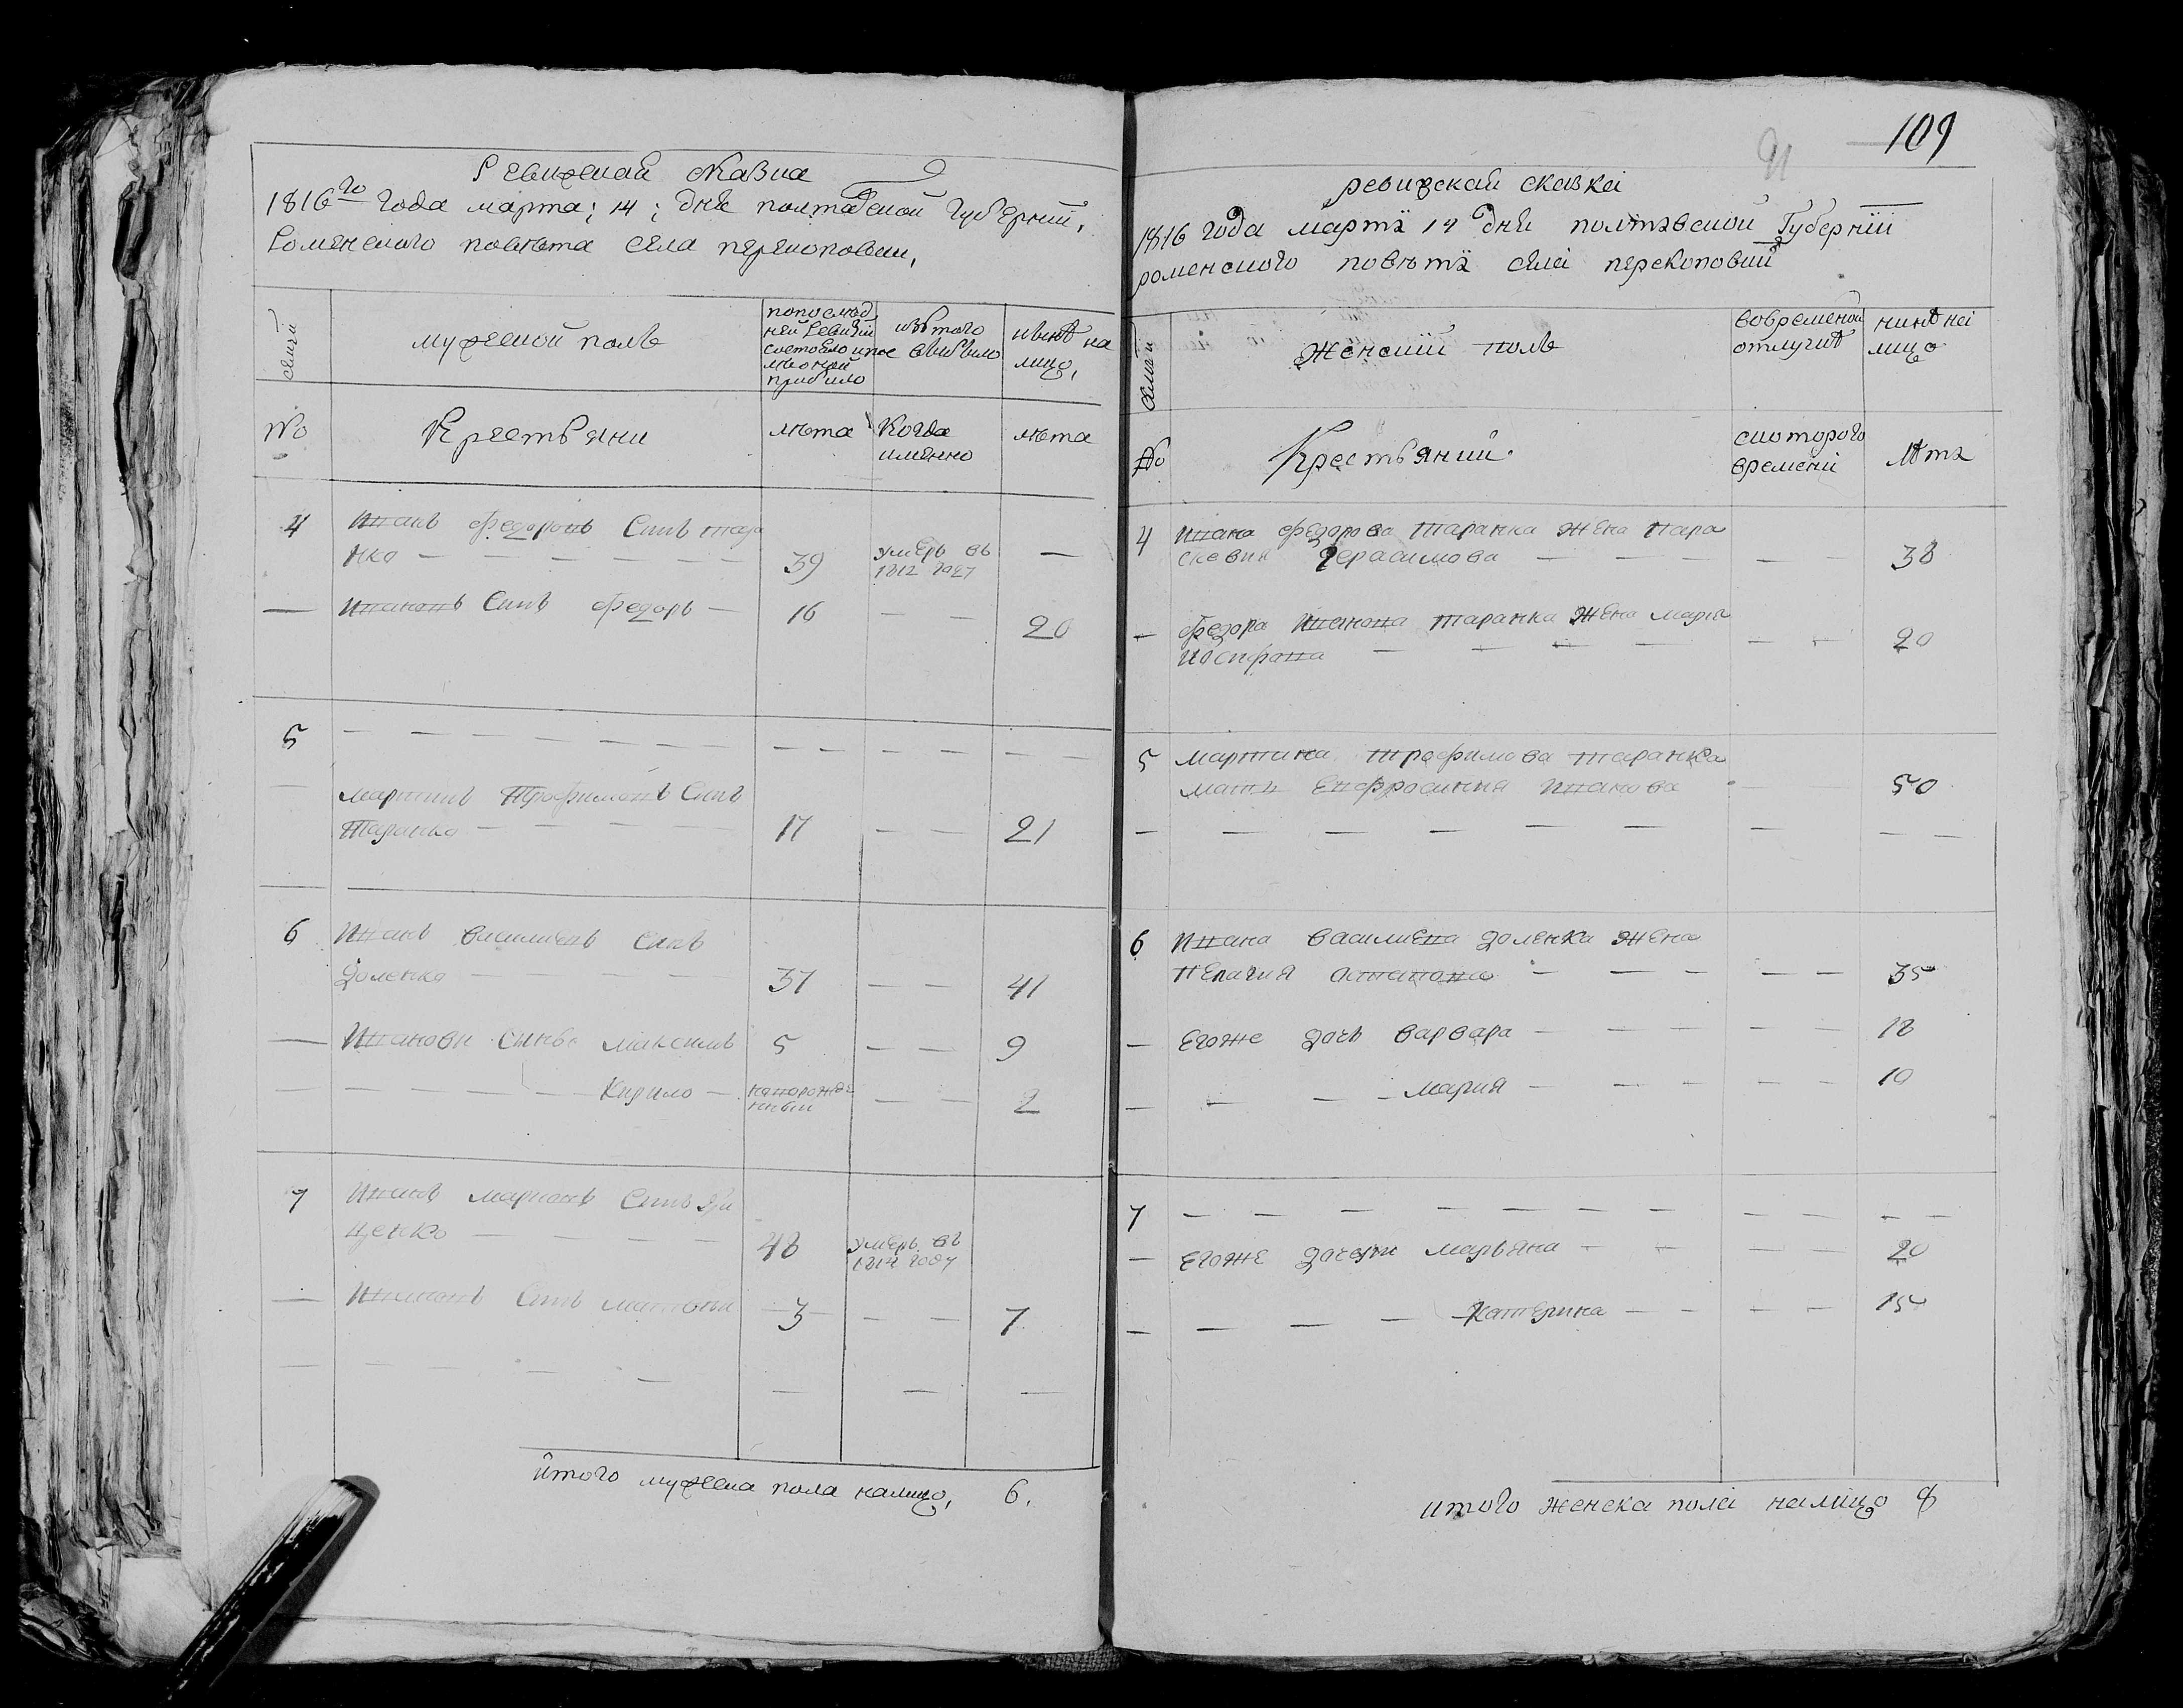 Ревизская сказка
1816го года марта; 14; дня полтавской губерний,
Роменского повѣта села перекоповки,
семьи
мужеской полъ
попослѣд
ней Ревизіи
состояло ипос
лѣоной
прибило
изътого
выбило
нынѣ на
лицо,
№
Крестьяни
лѣта
Когда
именно
лѣта
4
Иванъ федоровъ Синъ тара
нко
39
умеръ въ
1812 году
Ивановъ Синъ федоръ
16
20
5
мартинъ Трофимовъ Синъ
Таранко
17
21
6
Иванъ василиевъ Синъ
Доленко
37
41
Иванови Синъя максимъ
5
9
Кирило
новорожде
нный
2
7
Иванъ марковъ Синъ
ценко
48
умеръ въ
1814 году
Ивановъ Синъ
3
7
итого мужеска пола налицо, 6.
109
ревизская сказка
1816 года марта 14 дня полтавской Губерніи
роменского повѣта села перекоповки
семьи
Женский полъ
вовременой
отлучкѣ
нинѣ на
лицо
№
Крестьяний
скоторого
времени
лѣта
4
Ивана федорова таранка жена пара
скевия герасимова
38
федора Иванова таранка жена мария
Иосифова
20
5
мартина трофимова таранка
мати Евфросиния Иванова
50
6
Ивана василиева доленка жена
пелагия
35
Егоже дочь варвара
12
мария
10
7
Егоже дочери марьяна
20
Катерина
15
итого женска пола налицо 8